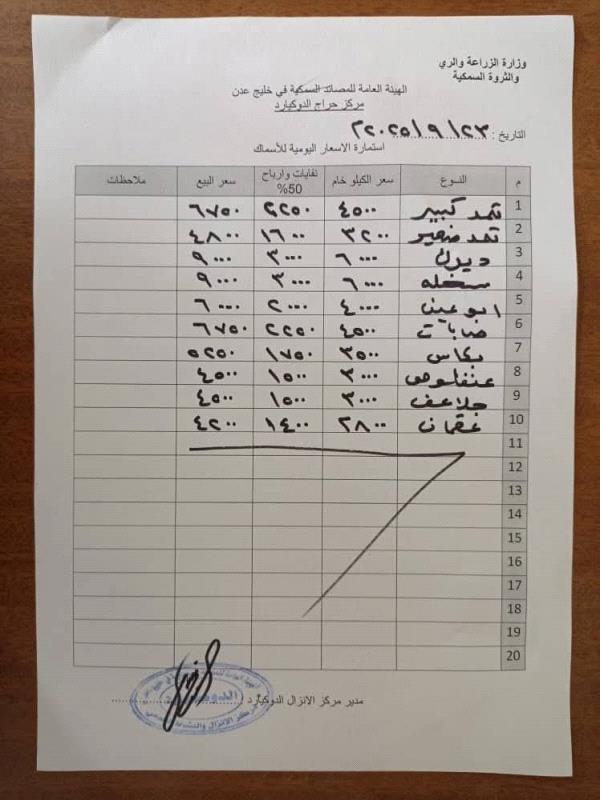 وزارة الزراعة والري
والثروة السمكية
الهيئة العامة للمصائد السمكية في خليج عدن
مركز حراج الدوكيارد
التاريخ : ٢٣ / ٩ / ٢٠٢٥م
استمارة الاسعار اليومية للأسماك
م النوع سعر الكيلو خام نفايات وارباح 50% سعر البيع ملاحظات
1 ثمد كبير ٤٥٠٠ ٢٢٥٠ ٦٧٥٠
2 ثمد صغير ٣٢٠٠ ١٦٠٠ ٤٨٠٠
3 ديرك ٦٠٠٠ ٣٠٠٠ ٩٠٠٠
4 سخله ٦٠٠٠ ٣٠٠٠ ٩٠٠٠
5 ابوعين ٤٠٠٠ ٢٠٠٠ ٦٠٠٠
6 ٤٥٠٠ ٢٢٥٠ ٦٧٥٠
7 ٣٥٠٠ ١٧٥٠ ٥٢٥٠
8 عنفلوص ٣٠٠٠ ١٥٠٠ ٤٥٠٠
9 جلاعف ٣٠٠٠ ١٥٠٠ ٤٥٠٠
10 عقمان ٢٨٠٠ ١٤٠٠ ٤٢٠٠
11
12
13
14
15
16
17
18
19
20
مدير مركز الانزال الدوكيارد